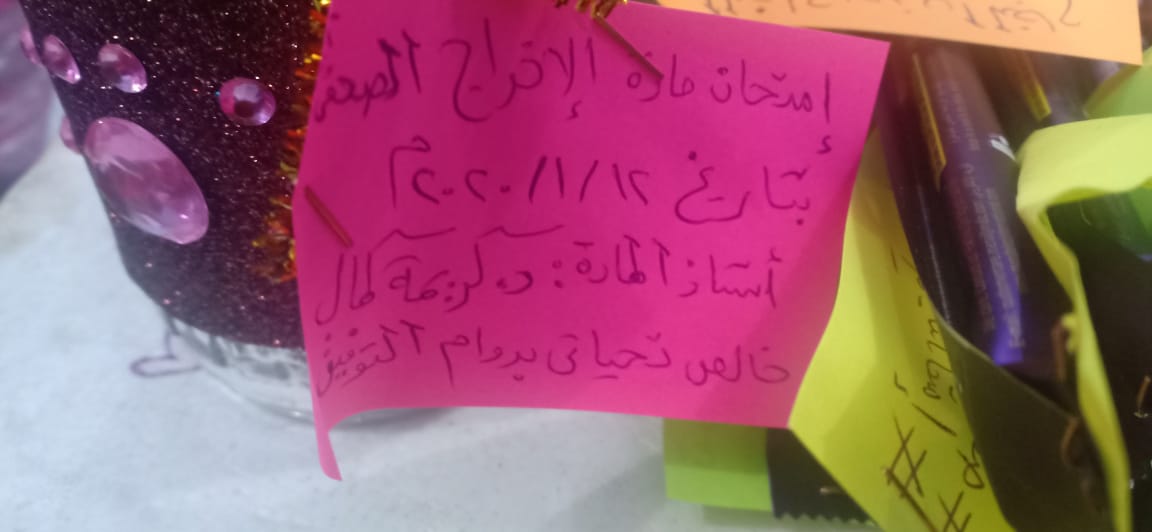 إمتحان مادة الإخراج الصحفي
بتاريخ ١٢/١/٢٠٢٠م
أستاذ المادة: د. كريمة كمال
خالص تحياتى بدوام التوفيق